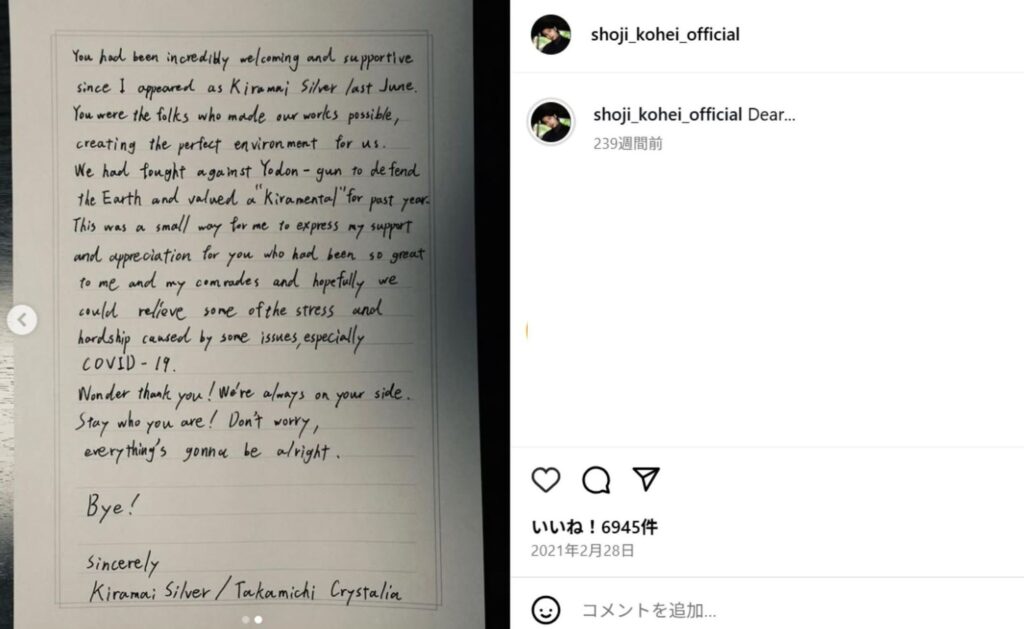 You had been incredibly welcoming and supportive
since I appeared as Kiramai Silver last June.
You were the folks who made our works possible,
creating the perfect environment for us.
We had fought against Yodon-gun to defend
the Earth and valued a "Kiramental" for past year.
This was a small way for me to express my support
and appreciation for you who had been so great
to me and my comrades and hopefully we
could relieve some of the stress and
hardship caused by some issues, especially
COVID-19.
Wonder thank you! We're always on your side.
Stay who you are! Don't worry,
everything's gonna be alright.
Bye!
Sincerely
Kiramai Silver/Takamichi Crystalia
shoji_kohei_official
shoji_kohei_official Dear...
239週間前
いいね！6945件
2021年2月28日
コメントを追加...